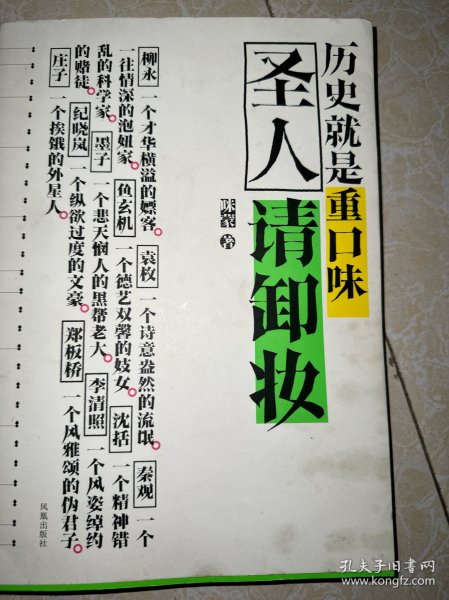 历史就是重口味
圣人请卸妆
咪蒙 著
柳永 一个才华横溢的嫖客。 袁枚 一个诗意盎然的流氓。 秦观 一个
一往情深的泡妞家。 鱼玄机 一个德艺双馨的妓女。 沈括 一个精神错
乱的科学家。 墨子 一个悲天悯人的黑帮老大。 李清照 一个风姿绰约
的赌徒。 纪晓岚 一个纵欲过度的文豪。 郑板桥 一个风雅颂的伪君子。
庄子 一个挨饿的外星人。
凤凰出版社
孔夫子旧书网
www.kongfz.com